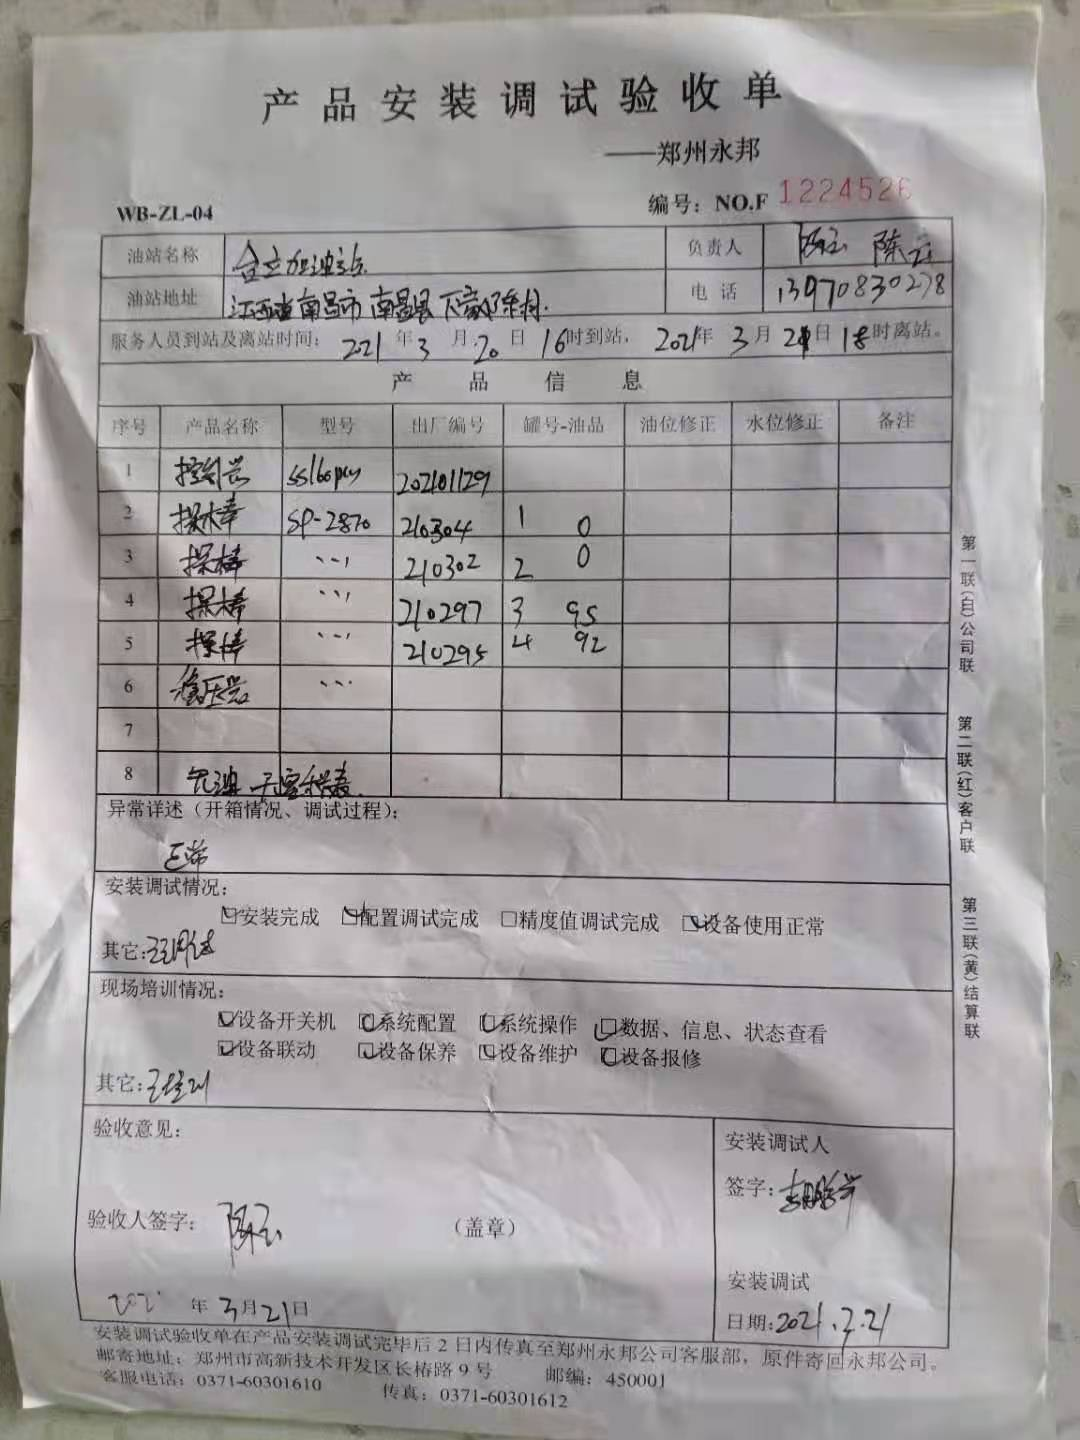 产品安装调试验收单
——郑州永邦
WB-ZL-04
编号：NO.F 1224526
油站名称 合立加油站 负责人 陈云 陈云
油站地址 江西省南昌市南昌县 村. 电话 13970830278
服务人员到站及离站时间：2021年3月20日16时到站，2021年3月21日18时离站。
产品信息
序号 产品名称 型号 出厂编号 罐号-油品 油位修正 水位修正 备注
1 控制器 202101129
2 探棒 SP-2870 210304 1 0
3 探棒 210302 2 0
4 探棒 210297 3 95
5 探棒 210295 4 92
6 稳压器
7
8
异常详述（开箱情况、调试过程）：
正常
安装调试情况：
安装完成 配置调试完成 精度值调试完成 设备使用正常
其它：
现场培训情况：
设备开关机 系统配置 系统操作 数据、信息、状态查看
设备联动 设备保养 设备维护 设备报修
其它：
验收意见：
验收人签字：陈云 （盖章）
2021年3月21日
安装调试人
签字：
安装调试
日期：2021.3.21
安装调试验收单在产品安装调试完毕后2日内传真至郑州永邦公司客服部，原件寄回永邦公司。
邮寄地址：郑州市高新技术开发区长椿路9号 邮编：450001
客服电话：0371-60301610 传真：0371-60301612
第一联（白）公司联
第二联（红）客户联
第三联（黄）结算联